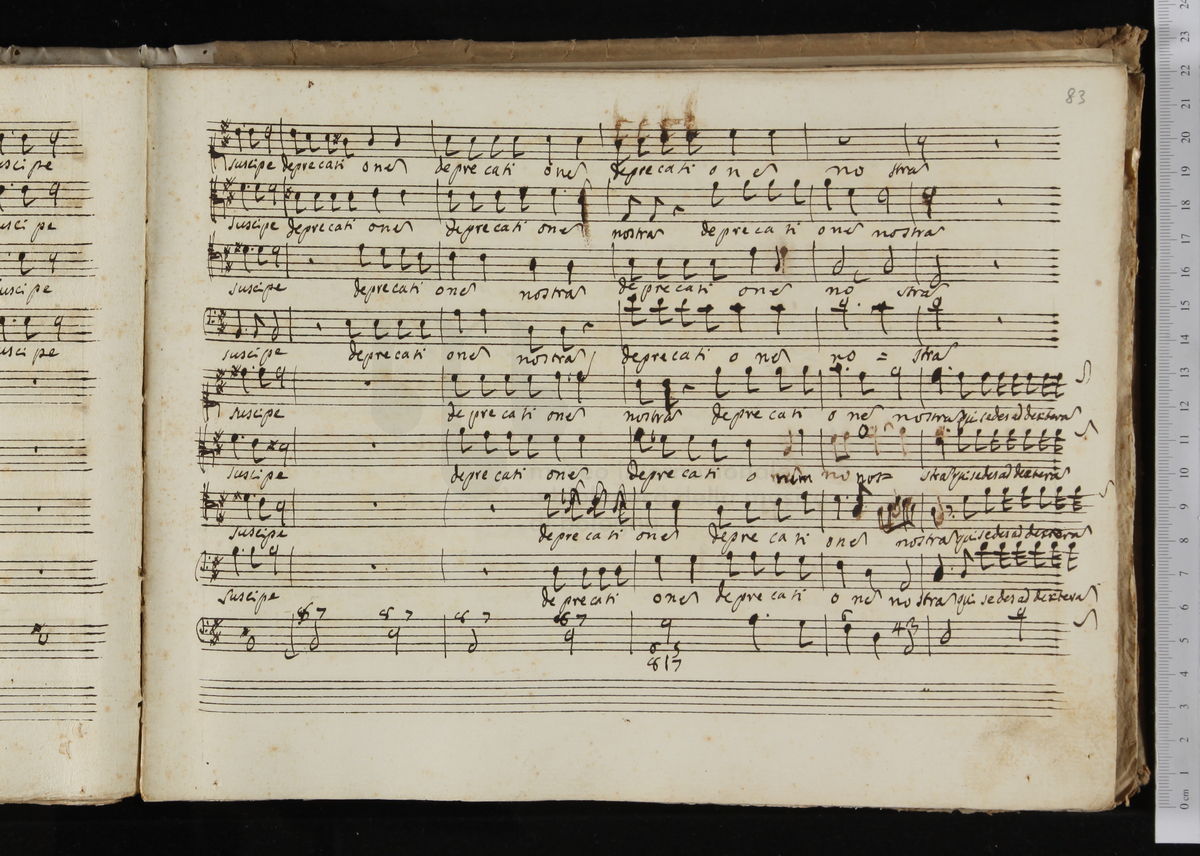 83
suscipe deprecati oneȝ deprecati oneȝ deprecati oneȝ no straȝ
suscipe deprecati oneȝ deprecati oneȝ nostraȝ deprecati oneȝ nostraȝ
suscipe deprecati oneȝ nostraȝ deprecati oneȝ no straȝ
suscipe deprecati oneȝ nostraȝ deprecati oneȝ no = straȝ
suscipe deprecati oneȝ nostraȝ deprecati oneȝ nostraȝ qui sedes ad dexteraȝ
suscipe deprecati oneȝ deprecati o no nos= straȝ qui sedes ad dextera
suscipe deprecati oneȝ deprecati oneȝ nostraȝ qui sedes ad dexteraȝ
suscipe deprecati oneȝ deprecati oneȝ nostraȝ qui sedes ad dexteraȝ
8 7 8 7 8 7 8 7 6 43
6 5
8 7